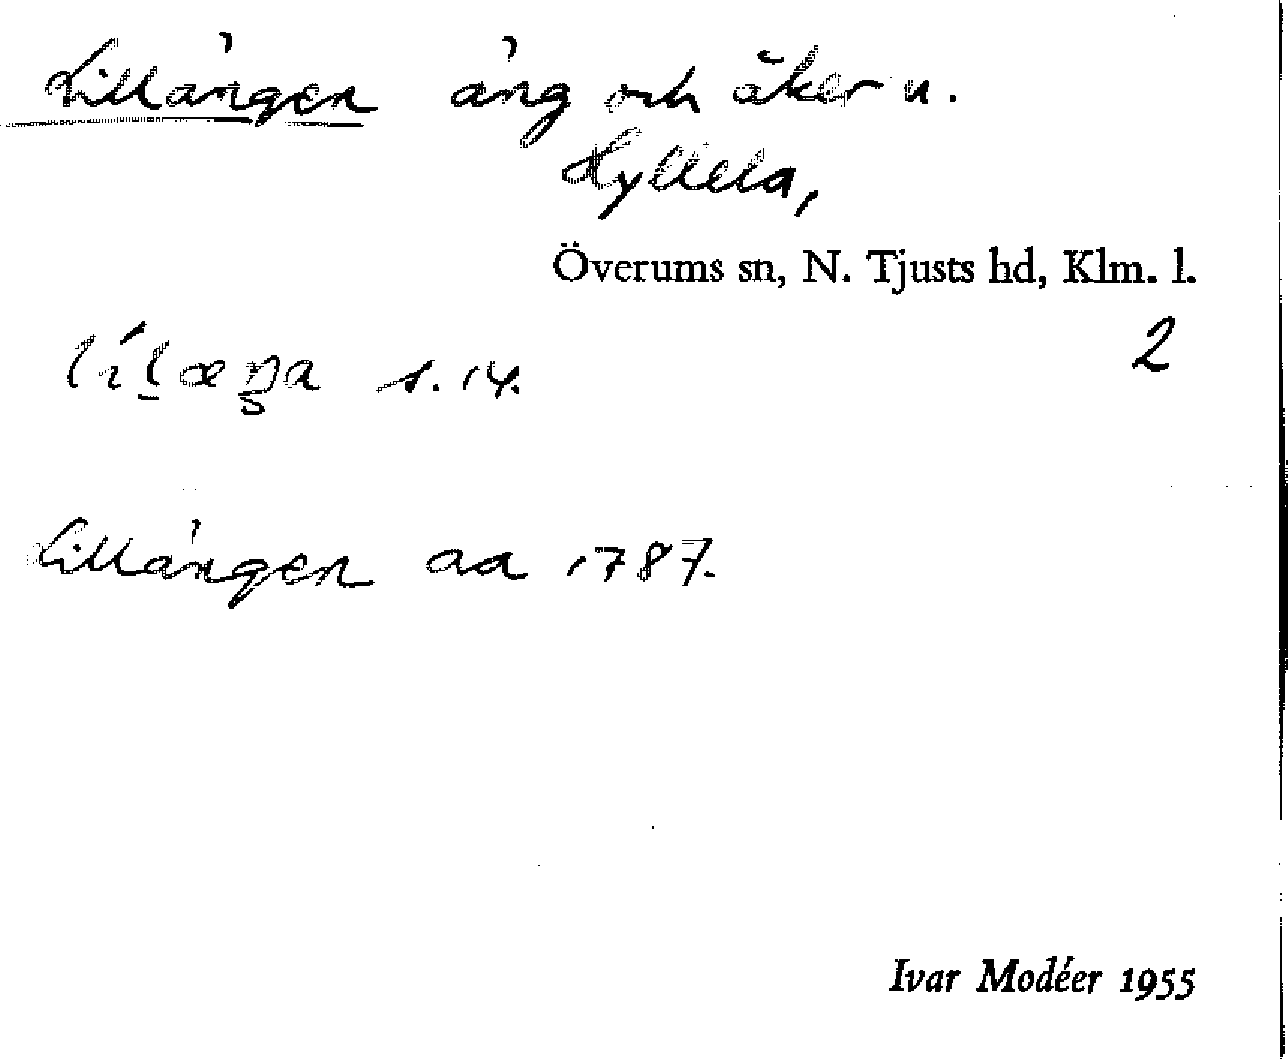 Lillängen äng och åker u.
Hyllela,
Överums sn, N. Tjusts hd, Klm. l.
2
s. 14.
Lillängen aa 1787.
Ivar Modéer 1955